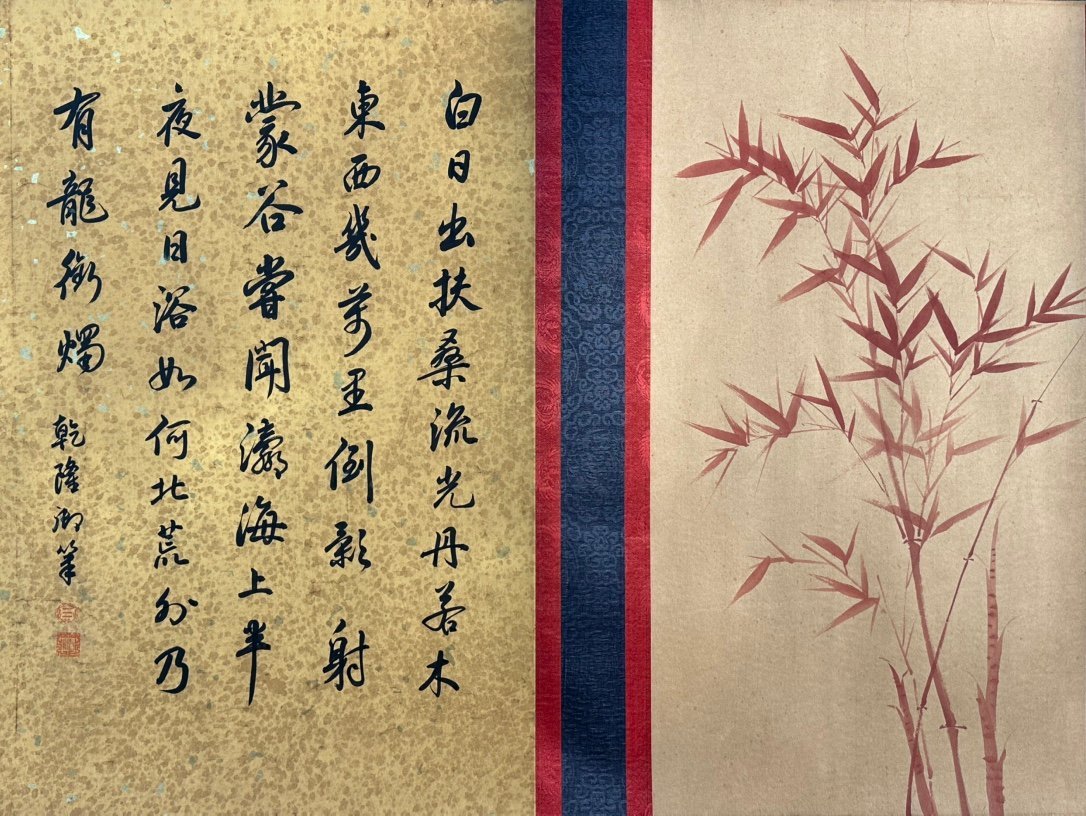 白日出扶桑流光丹若木
東西幾萬里倒影射
蒙谷嘗聞瀛海上半
夜見日浴如何北荒外乃
有龍銜燭
乾隆御筆